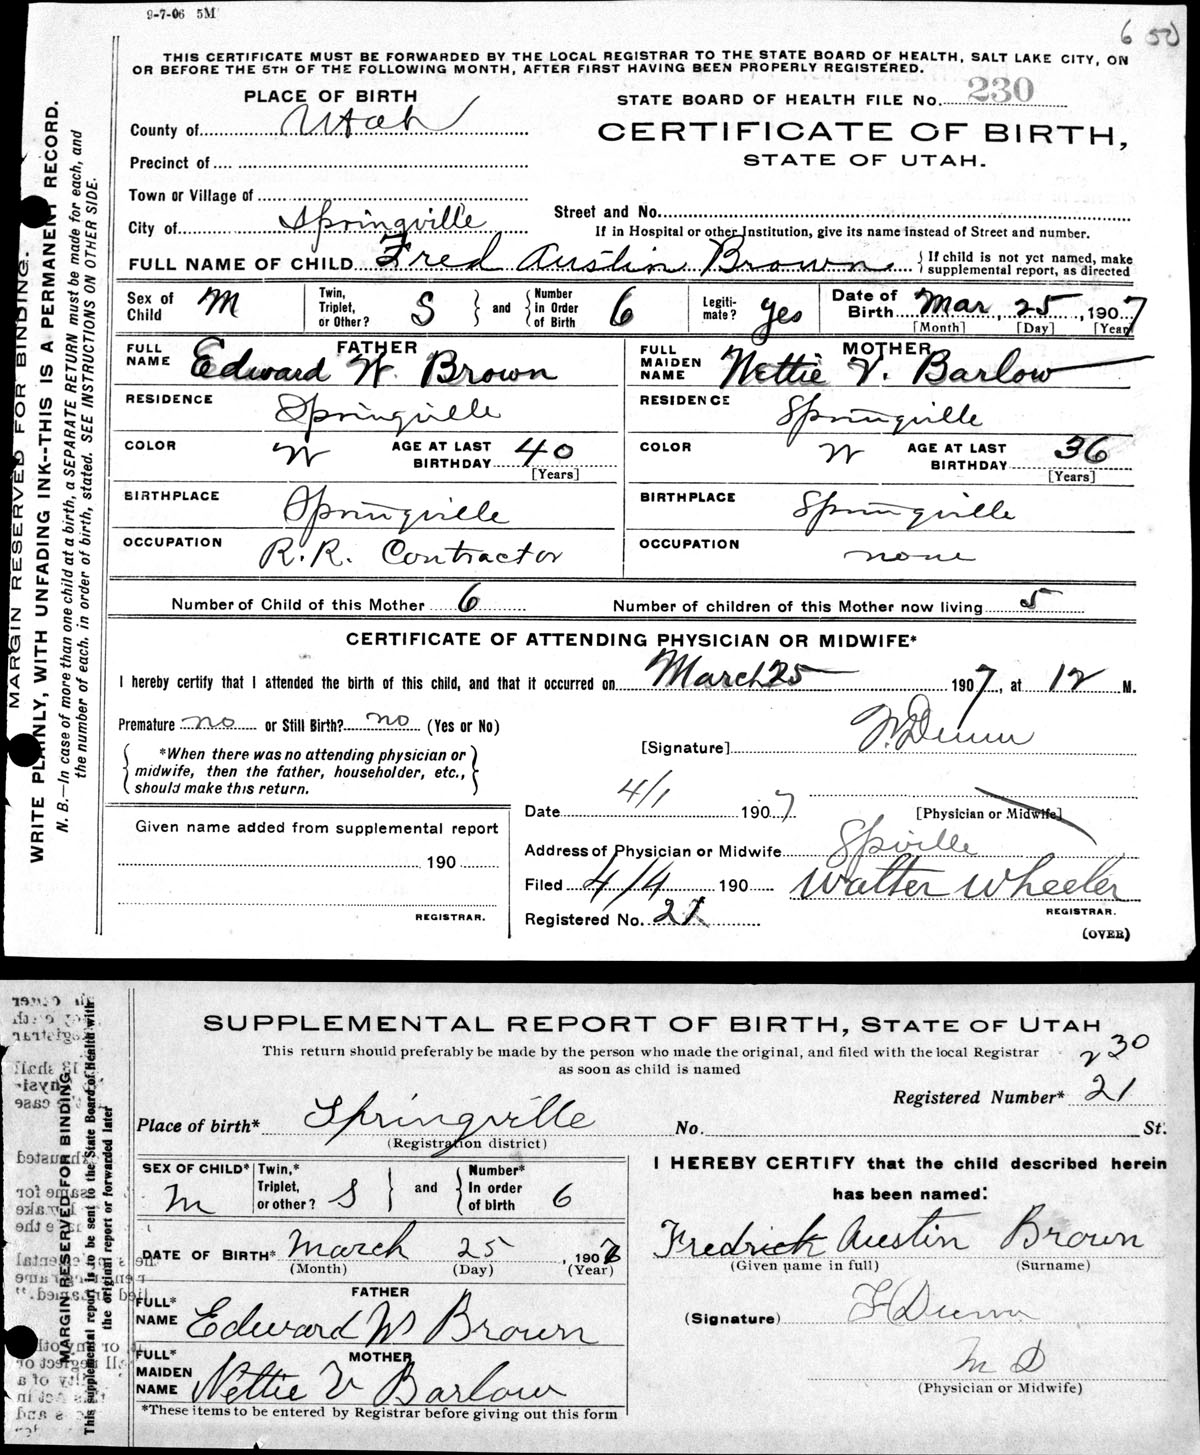 9-7-06 5M
6 50
THIS CERTIFICATE MUST BE FORWARDED BY THE LOCAL REGISTRAR TO THE STATE BOARD OF HEALTH, SALT LAKE CITY, ON
OR BEFORE THE 5TH OF THE FOLLOWING MONTH, AFTER FIRST HAVING BEEN PROPERLY REGISTERED.
MARGIN RESERVED FOR BINDING.
WRITE PLAINLY, WITH UNFADING INK--THIS IS A PERMANENT RECORD.
N. B.—In case of more than one child at a birth, a SEPARATE RETURN must be made for each, and
the number of each, in order of birth, stated. SEE INSTRUCTIONS ON OTHER SIDE.
PLACE OF BIRTH
County of Utah
Precinct of
Town or Village of
City of Springville
STATE BOARD OF HEALTH FILE No. 230
CERTIFICATE OF BIRTH,
STATE OF UTAH.
Street and No.
If in Hospital or other Institution, give its name instead of Street and number.
FULL NAME OF CHILD Fred Austin Brown { If child is not yet named, make
supplemental report, as directed
Sex of Child M Twin, Triplet, or Other? S } and { Number in Order of Birth 6 Legiti- mate? yes Date of Birth Mar, 25, 1907
[Month] [Day] [Year]
FATHER
FULL NAME Edward W. Brown
MOTHER
FULL MAIDEN NAME Nettie V. Barlow
RESIDENCE Springville RESIDENCE Springville
COLOR W AGE AT LAST BIRTHDAY 40 [Years] COLOR W AGE AT LAST BIRTHDAY 36 [Years]
BIRTHPLACE Springville BIRTHPLACE Springville
OCCUPATION R.R. Contractor OCCUPATION none
Number of Child of this Mother 6 Number of children of this Mother now living 5
CERTIFICATE OF ATTENDING PHYSICIAN OR MIDWIFE*
I hereby certify that I attended the birth of this child, and that it occurred on March 25 1907, at 12 M.
Premature no or Still Birth? no (Yes or No)
[Signature] Dunn
{ *When there was no attending physician or
midwife, then the father, householder, etc.,
should make this return. }
Date 4/1 1907 [Physician or Midwife]
Given name added from supplemental report
190
REGISTRAR.
Address of Physician or Midwife Spville
Filed 4/4 190 Walter Wheeler
Registered No. 21 REGISTRAR.
(OVER)
MARGIN RESERVED FOR BINDING.
This supplemental report is to be sent to the State Board of Health with
the original report or forwarded later
SUPPLEMENTAL REPORT OF BIRTH, STATE OF UTAH
This return should preferably be made by the person who made the original, and filed with the local Registrar
as soon as child is named
230
Registered Number* 21
Place of birth* Springville No. St.
(Registration district)
SEX OF CHILD* M Twin,* Triplet, or other? S } and { Number* In order of birth 6
DATE OF BIRTH* March 25, 1907
(Month) (Day) (Year)
FATHER
FULL* NAME Edward W Brown
MOTHER
FULL* MAIDEN NAME Nettie V Barlow
*These items to be entered by Registrar before giving out this form
I HEREBY CERTIFY that the child described herein
has been named:
Fredrick Austin Brown
(Given name in full) (Surname)
(Signature) F Dunn
M D
(Physician or Midwife)